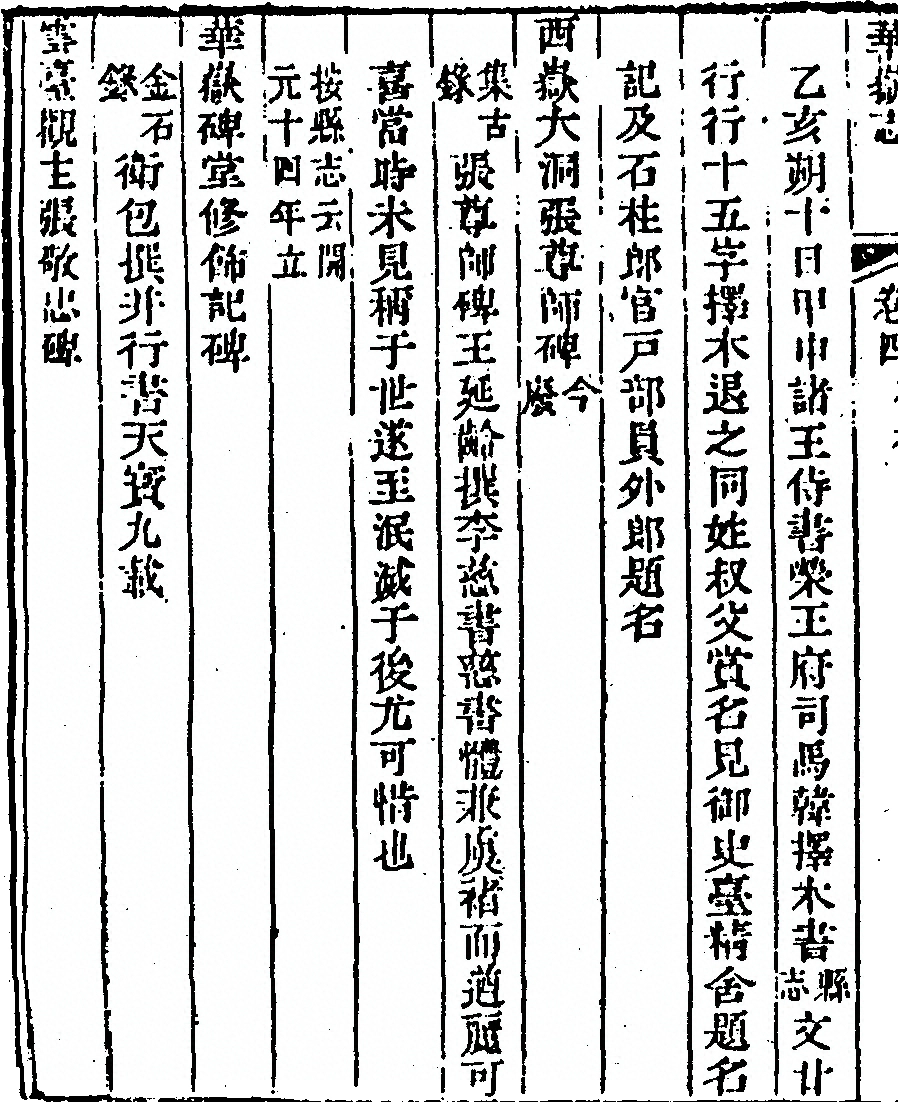 華嶽志 卷四
乙亥朔十日甲申諸王侍書榮王府司馬韓擇木書縣志文廿
行行十五字擇木退之同姓叔父賞名見御史臺精舍題名
記及石柱郎官戸部員外郎題名
西嶽大洞張尊師碑今廢
集古錄張尊師碑王延齡撰李慈書慈書體兼虞褚而遒麗可
喜當時未見稱于世遂至泯滅于後尤可惜也
按縣志云開元十四年立
華嶽碑堂修飾記碑
金石錄衛包撰并行書天寶九載
雲臺觀主張敬忠碑